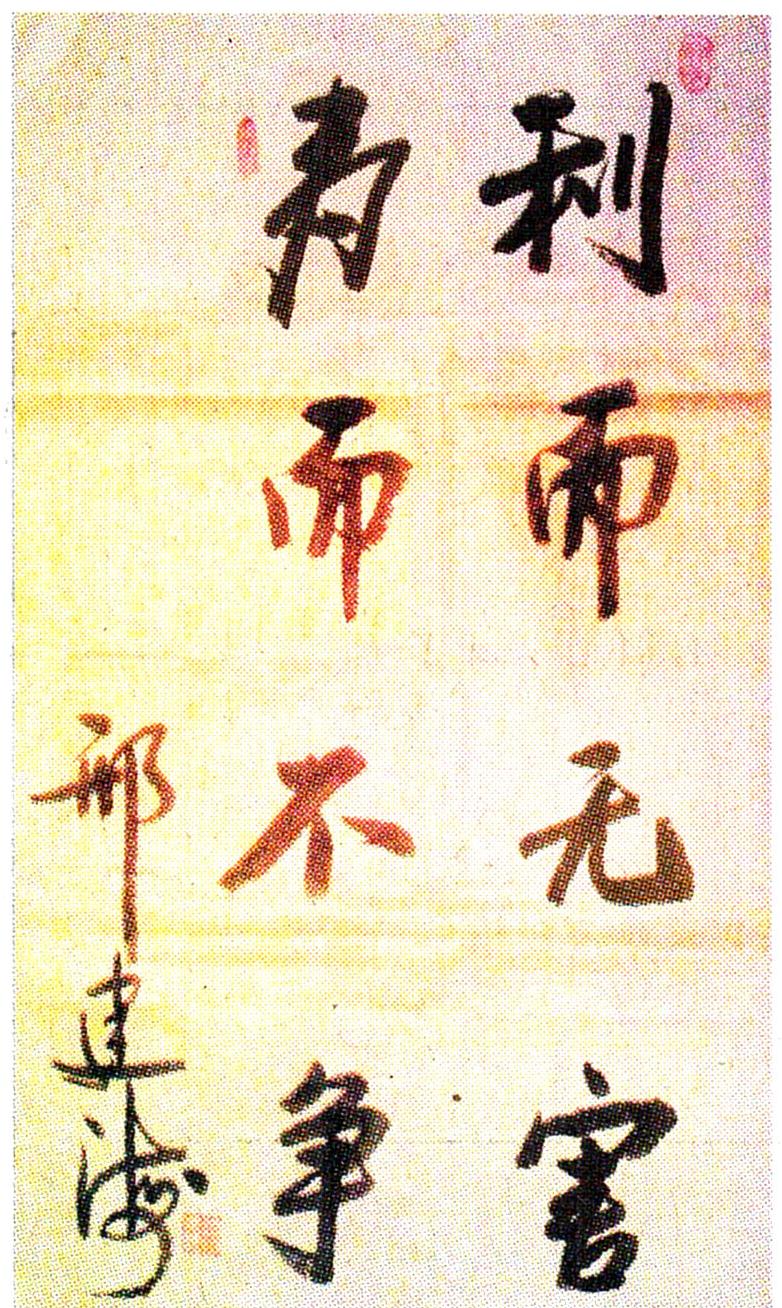 利而无害
为而不争
邢建海